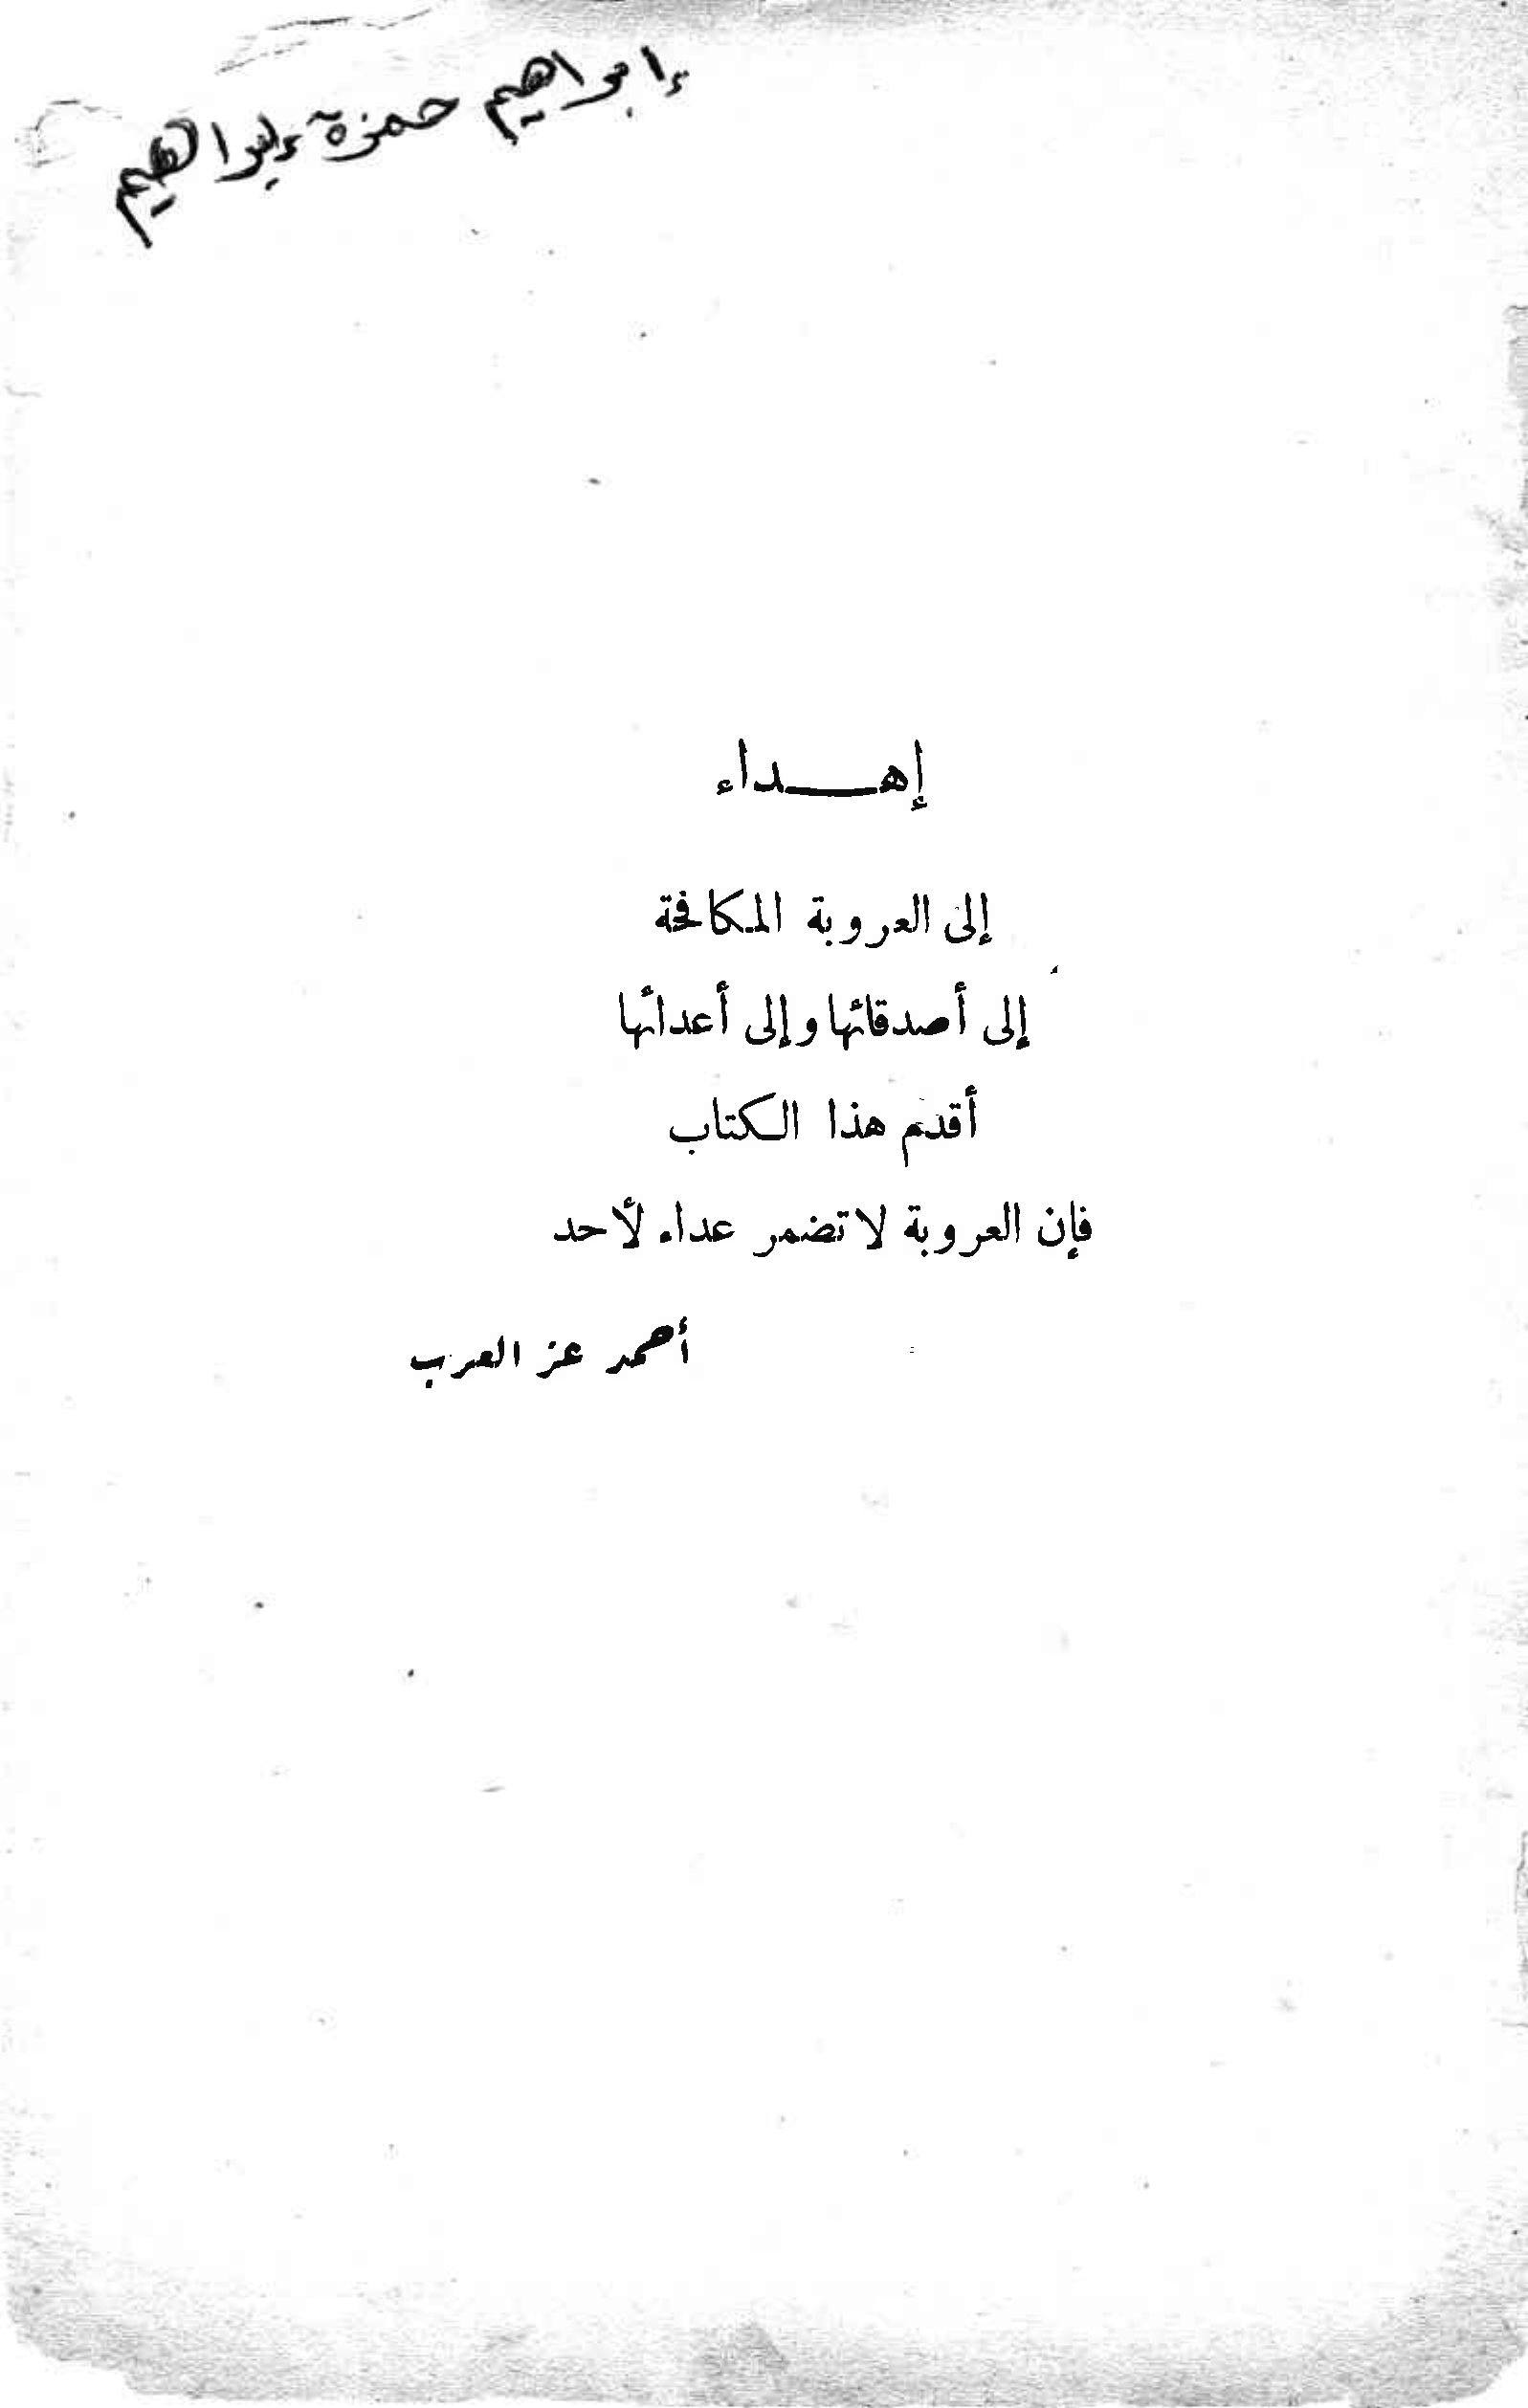 إبراهيم حمزة إبراهيم
إهـــداء
إلى العروبة المكافحة
إلى أصدقائها وإلى أعدائها
أقدم هذا الكتاب
فإن العروبة لا تضمر عداء لأحد
أحمد عز العرب